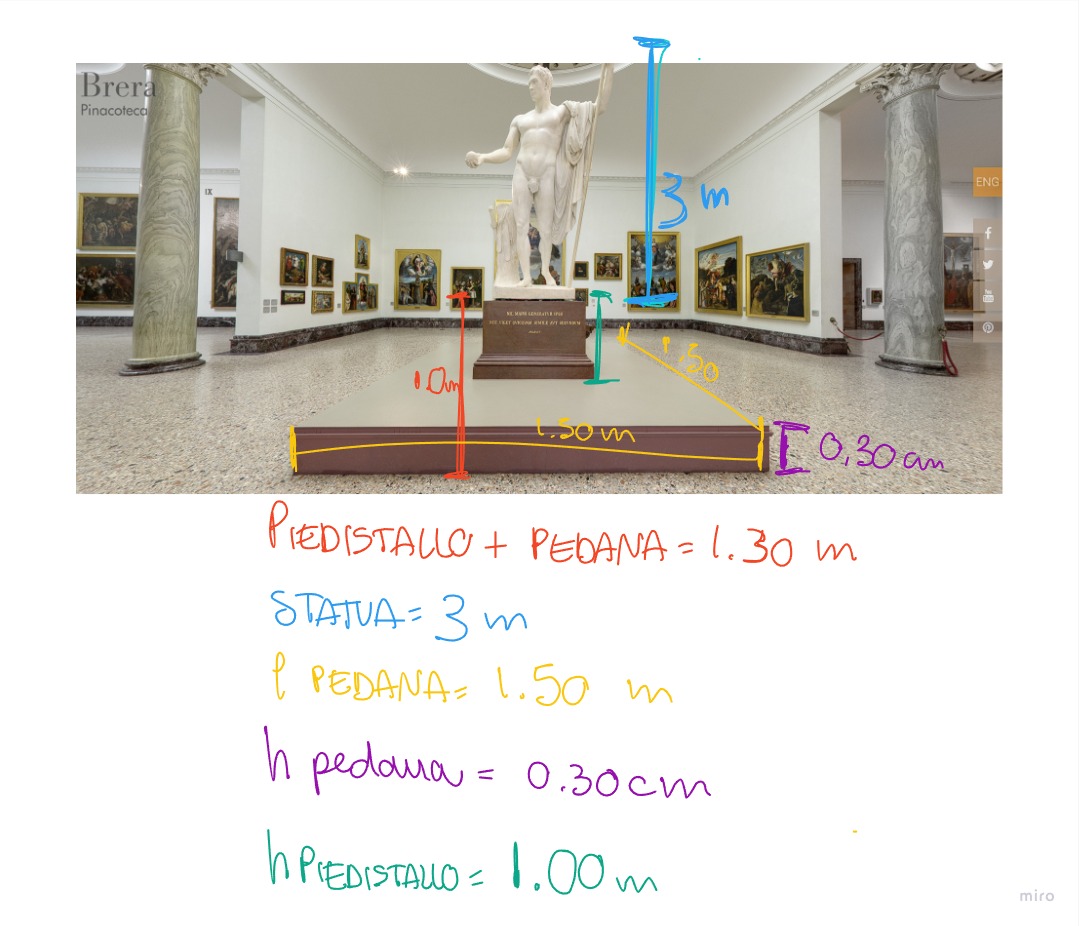 Brera
Pinacoteca
IX
3 m
ENG
1.50
1.0m
1.50 m
0,30 cm
PIEDISTALLO + PEDANA = 1.30 m
STATUA = 3 m
l PEDANA = 1.50 m
h pedana = 0.30cm
h PIEDISTALLO = 1.00 m
miro